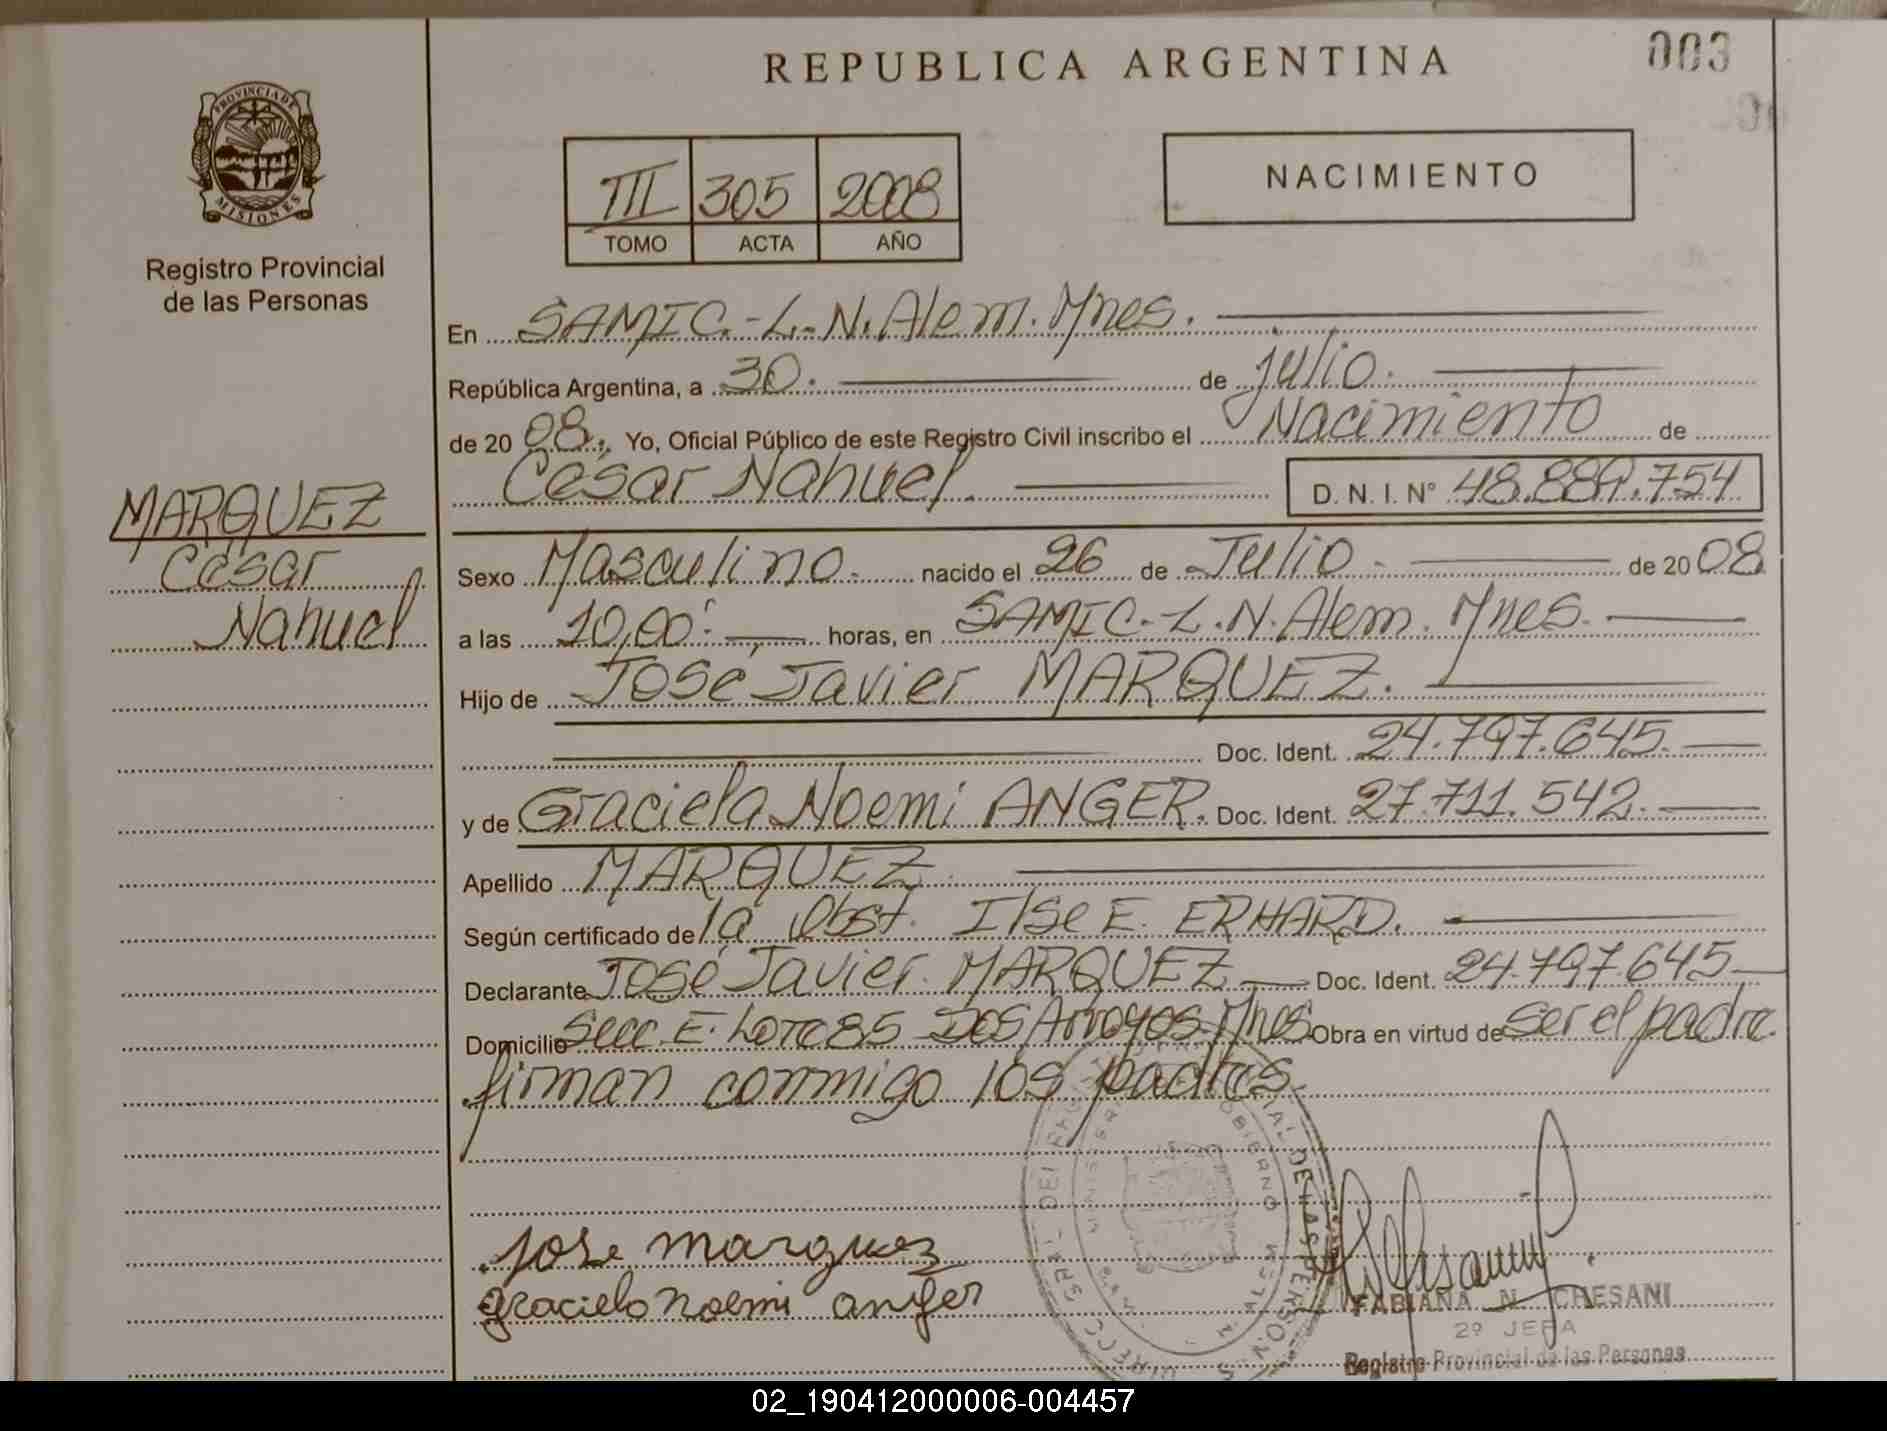 REPUBLICA ARGENTINA
003
PROVINCIA DE
MISIONES
Registro Provincial
de las Personas
III 305 2008
TOMO ACTA AÑO
NACIMIENTO
En SAMIC.-L.N.Alem.Mnes.
República Argentina, a 30. de julio.
de 20 08. Yo, Oficial Público de este Registro Civil inscribo el Nacimiento de
César Nahuel. D. N. I. N° 48.889.754
MARQUEZ
César
Nahuel
Sexo Masculino. nacido el 26 de Julio de 20 08
a las 10,00. horas, en SAMIC.-L.N.Alem. Mnes.
Hijo de José Javier MARQUEZ.
Doc. Ident. 24.797.645.
y de Graciela Noemi ANGER. Doc. Ident. 27.711.542.
Apellido MARQUEZ
Según certificado de la Obst. Ilse E. ERHARD.
Declarante José Javier MARQUEZ Doc. Ident. 24.797.645
Domicilio Secc. E. Lote 85 Dos Arroyos Mnes Obra en virtud de ser el padre.
firman conmigo los padres.
Jose marquez
graciela noemi anger
FABIANA N. CHESANI
2º JEFA
Registro Provincial de las Personas
02_190412000006-004457